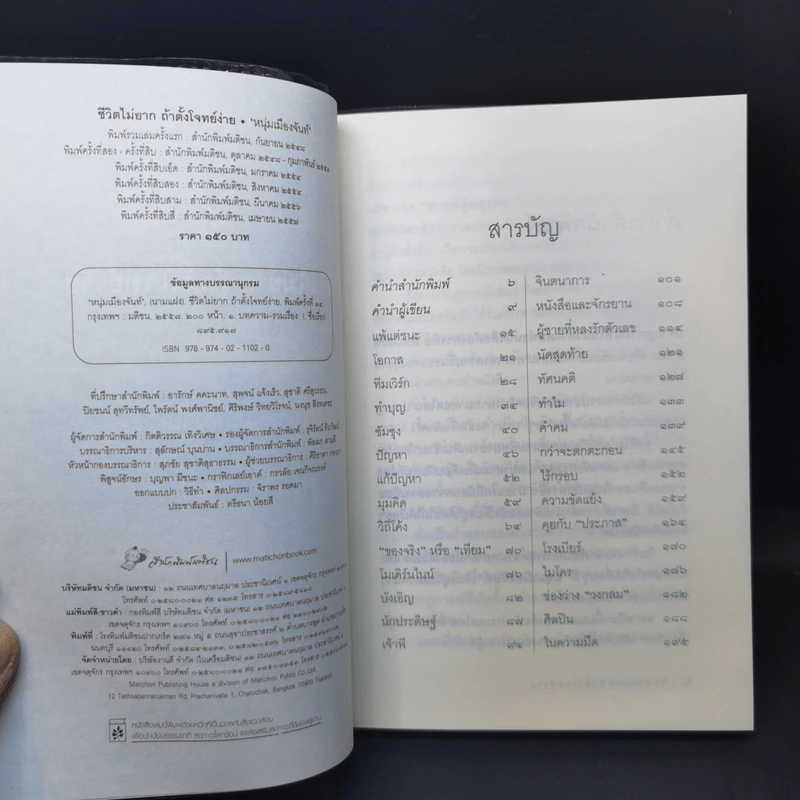 ชีวิตไม่ยาก ถ้าตั้งโจทย์ง่าย • "หนุ่มเมืองจันท์"
พิมพ์รวมเล่มครั้งแรก : สำนักพิมพ์มติชน, กันยายน ๒๕๔๘
พิมพ์ครั้งที่สอง - ครั้งที่สิบ : สำนักพิมพ์มติชน, ตุลาคม ๒๕๔๘ - กุมภาพันธ์
พิมพ์ครั้งที่สิบเอ็ด : สำนักพิมพ์มติชน, มกราคม ๒๕๕๔
พิมพ์ครั้งที่สิบสอง : สำนักพิมพ์มติชน, สิงหาคม ๒๕๕๔
พิมพ์ครั้งที่สิบสาม : สำนักพิมพ์มติชน, มีนาคม ๒๕๕๖
พิมพ์ครั้งที่สิบสี่ : สำนักพิมพ์มติชน, เมษายน ๒๕๕๗
ราคา ๑๕๐ บาท
ข้อมูลทางบรรณานุกรม
"หนุ่มเมืองจันท์", (นามแฝง). ชีวิตไม่ยาก ถ้าตั้งโจทย์ง่าย. พิมพ์ครั้งที่ ๑๔.
กรุงเทพฯ : มติชน, ๒๕๕๗. ๒๐๐ หน้า. ๑. บทความ-รวมเรื่อง I. ชื่อเรื่อง
๘๙๕.๙๑๗
ISBN 978 - 974 - 02 - 1102 - 0
ที่ปรึกษาสำนักพิมพ์ : อารักษ์ คคะนาท, สุพจน์ แจ้งเร็ว, สุชาติ ศรีสุวรรณ,
ปิยชนน์ สุทวีทรัพย์, ไพรัตน์ พงศ์พานิชย์, ศิริพงษ์ วิทยวิโรจน์, นงนุช สิงหเดชะ
ผู้จัดการสำนักพิมพ์ : กิตติวรรณ เทิงวิเศษ • รองผู้จัดการสำนักพิมพ์ : รุจิรัตน์ ทิมวัฒน์
บรรณาธิการบริหาร : สุลักษณ์ บุนปาน • บรรณาธิการสำนักพิมพ์ : พัลลภ สามสี
หัวหน้ากองบรรณาธิการ : สุภชัย สุชาติสุธาธรรม • ผู้ช่วยบรรณาธิการ :
พิสูจน์อักษร : บุญพา มีชนะ • กราฟิกเลย์เอาต์ : กรวลัย เจนกิจณรงค์
ออกแบบปก : วิธีทำ • ศิลปกรรม : จิราพร รอดมา
ประชาสัมพันธ์ : ตรีธนา น้อยสี
สำนักพิมพ์มติชน
www.matichonbook.com
บริษัทมติชน จำกัด (มหาชน) : ๑๒ ถนนเทศบาลนฤมาล ประชานิเวศน์ ๑ เขตจตุจักร
แม่พิมพ์สี-ขาวดำ : กองพิมพ์สี บริษัทมติชน จำกัด (มหาชน) ๑๒ ถนนเทศบาลนฤมาล
พิมพ์ที่ : โรงพิมพ์มติชนปากเกร็ด ๒๗/๑ หมู่ ๕ ถนนสุขาประชาสรรค์ ๒
จัดจำหน่ายโดย : บริษัทงานดี จำกัด (ในเครือมติชน) ๑๒ ถนนเทศบาลนฤมาล
Matichon Publishing House a division of Matichon Public Co.,Ltd.
12 Tethsabannarueman Rd, Prachanivate 1, Chatuchak, Bangkok 10900 Thailand
หนังสือเล่มนี้พิมพ์ด้วยหมึกที่เป็นมิตรกับสิ่งแวดล้อม
สารบัญ
คำนำสำนักพิมพ์ ๖
คำนำผู้เขียน ๙
แพ้แต่ชนะ ๑๕
โอกาส ๒๑
ทีมเวิร์ก ๒๘
ทำบุญ ๓๔
ซัมซุง ๔๐
ปัญหา ๔๖
แก้ปัญหา ๕๒
มุมคิด ๕๙
วิถีโค้ง ๖๔
"ของจริง" หรือ "เทียม" ๗๐
โมเดิร์นไนน์ ๗๖
บังเอิญ ๘๒
นักประดิษฐ์ ๘๗
เจ้าพี่ ๙๔
จินตนาการ ๑๐๑
หนังสือและจักรยาน ๑๐๘
ผู้ชายที่หลงรักตัวเลข ๑๑๔
นัดสุดท้าย ๑๒๑
ทัศนคติ ๑๒๗
ทำไม ๑๓๓
คำคม ๑๓๙
กว่าจะตกตะกอน ๑๔๕
ไร้กรอบ ๑๕๒
ความขัดแย้ง ๑๕๙
คุยกับ "ประภาส" ๑๖๔
โรงเบียร์ ๑๗๐
ไมโคร ๑๗๖
ช่องว่าง "วงกลม" ๑๘๒
ศิลปิน ๑๘๘
ในความมืด ๑๙๕